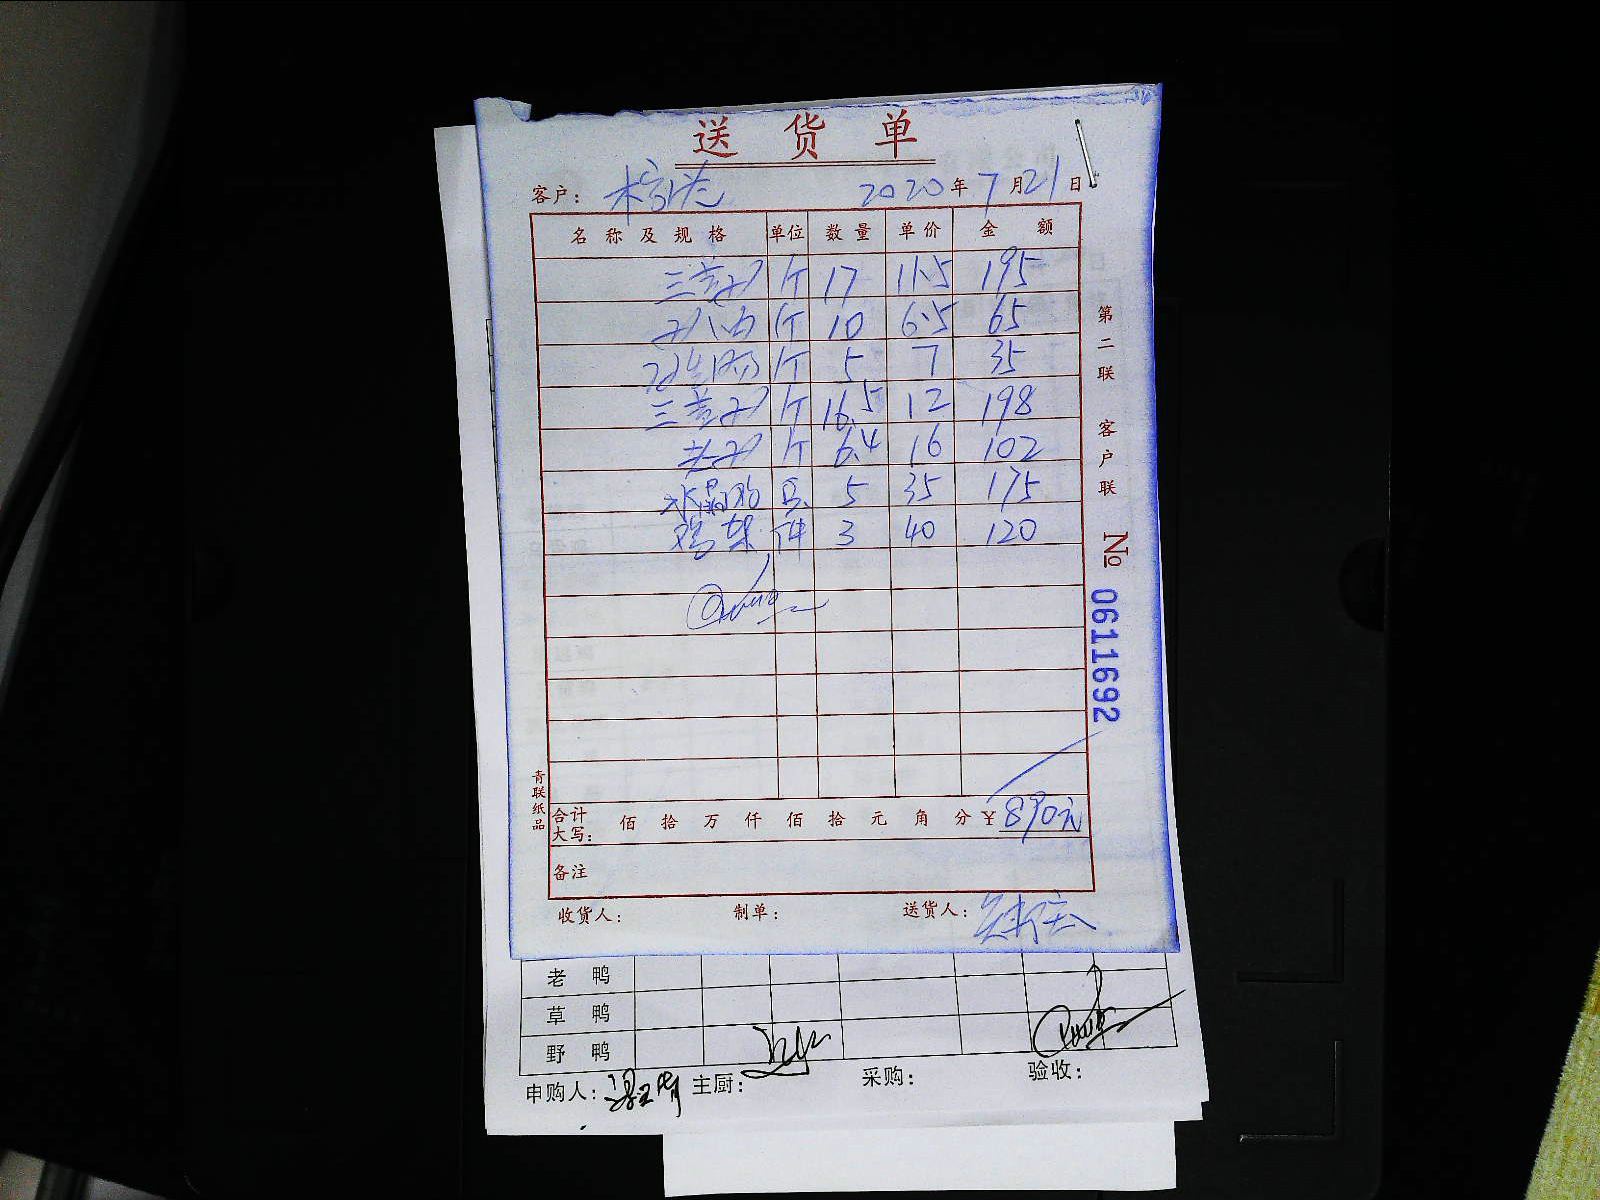 送货单
客户： 2020年7月21日
名称及规格 单位 数量 单价 金额
三黄 个 17 11.5 195
个 10 6.5 65
个 5 7 35
三黄 个 16.5 12 198
个 6.4 16 102
水晶鸡 只 5 35 175
鸡架 件 3 40 120
合计大写： 佰 拾 万 仟 佰 拾 元 角 分 ¥890元
备注
收货人： 制单： 送货人：
第二联 客户联 № 0611692
青联纸品
老鸭
草鸭
野鸭
申购人： 主厨： 采购： 验收：